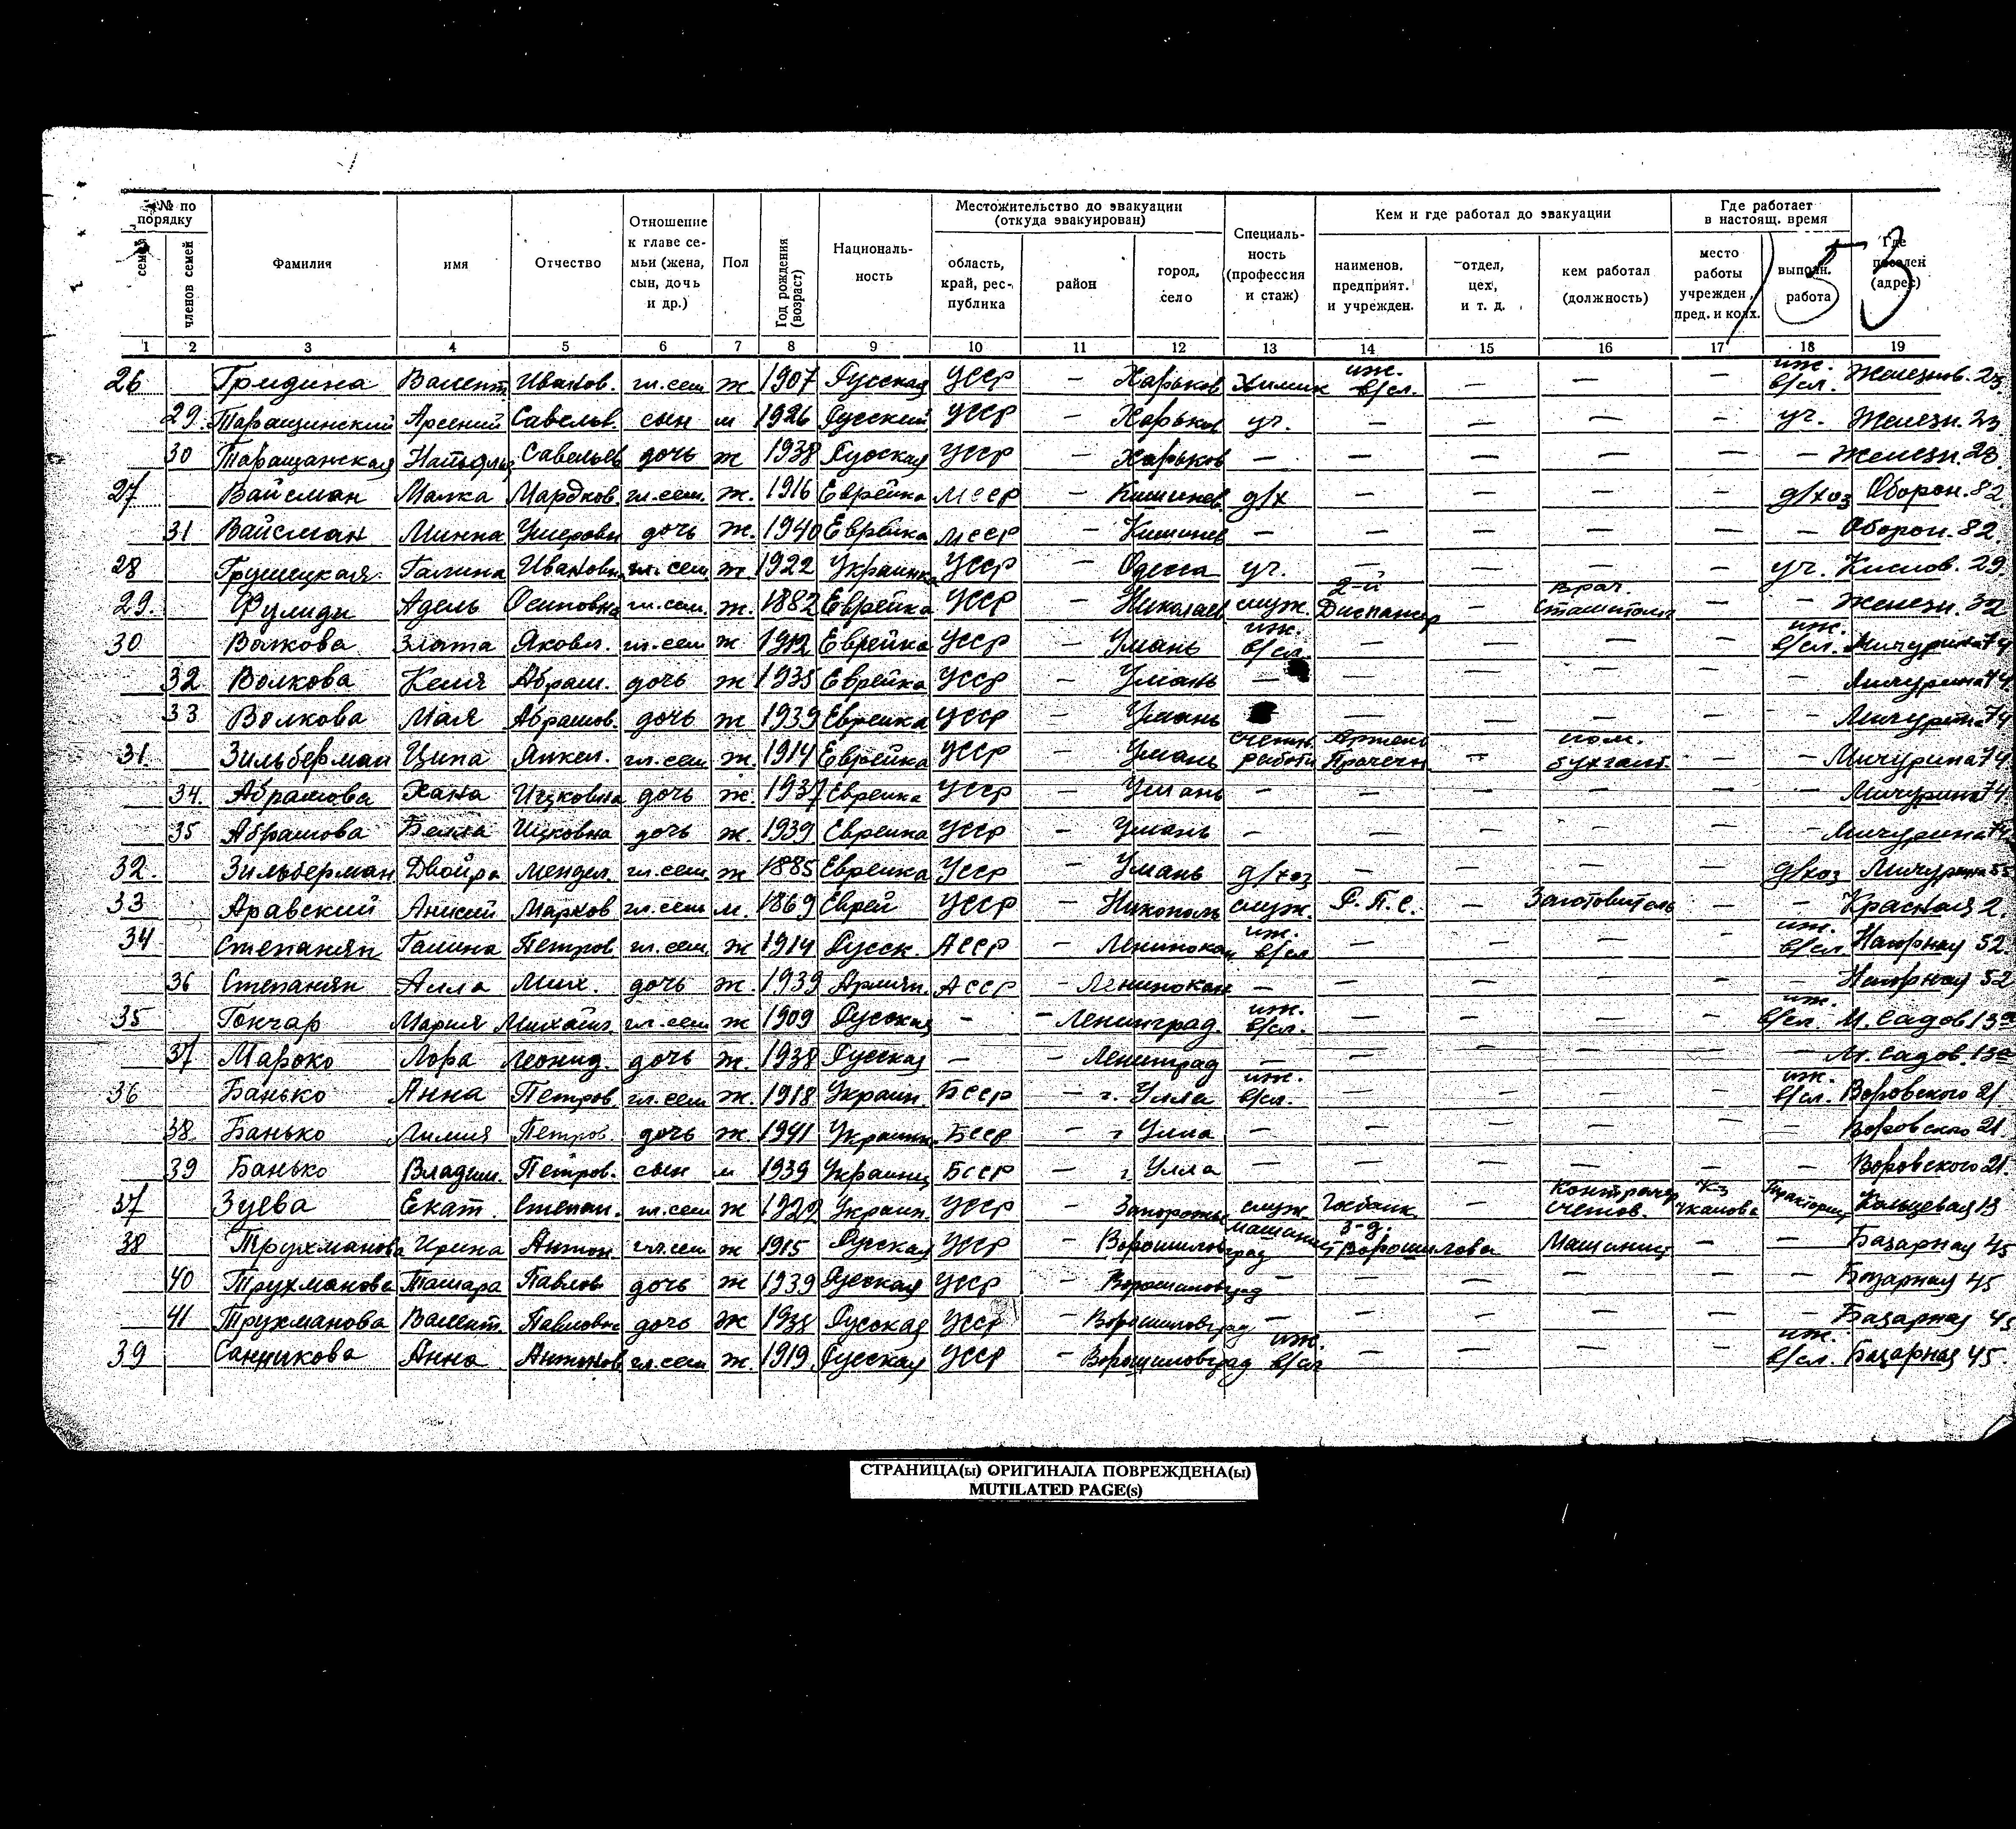 № по порядку
семей
членов семей
Фамилия
имя
Отчество
Отношение к главе се- мьи (жена, сын, дочь и др.)
Пол
Год рождения (возраст)
Националь- ность
Местожительство до эвакуации (откуда эвакуирован)
область, край, рес- публика
район
город, село
Специаль- ность (профессия и стаж)
Кем и где работал до эвакуации
наименов. предприят. и учрежден.
отдел, цех, и т. д.
кем работал (должность)
Где работает в настоящ. время
место работы учрежден, пред. и колх.
выполн. работа
Где поселен (адрес)
53
1 2 3 4 5 6 7 8 9 10 11 12 13 14 15 16 17 18 19
26 Гридина Валент. Иванов. гл. сем ж 1907 Русская УССР — Харьков Химик иж. в/сл. — — — иж. в/сл. Железнов. 23
29. Таращинский Арсений Савельв. сын м 1926 Русский УССР — Харьков уч. — — — — уч. Железн. 23
30 Таращанская Савельев дочь ж 1938 Русская УССР — Харьков — — — — — — Железн. 23.
27 Вайсман Малка Мардков. гл. сем. ж. 1916 Еврейка МССР — Кишинев. д/х — — — — д/хоз Оборон. 82
31 Вайсман Минна Умеровн дочь ж. 1940 Еврейка МССР — Кишинев — — — — — — Оборон. 82.
28 Грушецкая Галина Ивановна гл. сем ж. 1922 Украинка УССР — Одесса уч. — — — — уч. Кислов. 29.
29. Фулиди Адель Осиповна гл. сем. ж. 1882 Еврейка УССР — Николаев служ. 2-й Диспансер — врач. — — Железн. 32
30 Волкова Злата Яковл. гл. сем ж 1912 Еврейка УССР — Умань иж. в/сл. — — — — иж. в/сл. Мичурина 74
32 Волкова Келя Абрам. дочь ж 1935 Еврейка УССР — Умань — — — — — — Мичурина 74
33 Волкова Мая Абрамов. дочь ж 1939 Еврейка УССР — Умань — — — — — Мичурина 74
31 Зильберман Ципа Янкел. гл. сем ж. 1914 Еврейка УССР — Умань счетн. работн Артель Прачечн — пом. бухгалт. — — Мичурина 74.
34. Абрамова Хана Ицковна дочь ж. 1937 Еврейка УССР — Умань — — — — — — Мичурина 74.
35 Абрамова Белла Ицковна дочь ж. 1939 Еврейка УССР — Умань — — — — — — Мичурина 74.
32. Зильберман Двойра Мендел. гл. сем. ж 1885 Еврейка УССР — Умань д/хоз — — — — д/хоз Мичурина 55
33 Аравский Анисий Марков гл. сем м. 1869 Еврей УССР — Никополь служ. Р. П. С. — Заготовитель — — Красная 2.
34 Степанян Галина Петров. гл. сем. ж 1914 Русск. АССР — Ленинокан иж. в/сл — — — — иж. в/сл. Нагорная 52.
36 Степанян Алла Мих. дочь ж. 1939 Армян. АССР — Ленинокан — — — — — — Нагорная 52
35 Гончар Мария Михайл. гл. сем ж 1909 Русская — — Ленинград. иж. в/сл. — — — — иж. в/сл. М. садов 13а
37 Мароко Лора Леонид. дочь ж. 1938 Русская — — Ленинград — — — — — — М. садов. 13а
36 Банько Анна Петров. гл. сем ж. 1918 Украин. БССР — г. Улла иж. в/сл. — — — — иж. в/сл. Воровского 21
38. Банько Лилия Петров. дочь ж. 1941 Украинк. БССР — г Улла — — — — — — Воровского 21.
39 Банько Владим. Петров. сын м 1939 Украинец БССР — г Улла — — — — — — Воровского 21.
37 Зуева Екат. Степан. гл. сем ж 1922 Украин. УССР — Запорожье служ. Госбанк — Контролер счетов. кз Чкалова Кольцевая 13
38 Трухманова Ирина Антон гл. сем ж 1915 Русская УССР — Ворошиловград з-д. Ворошилова Машинист — — Базарная 45
40 Трухманова Тамара Павлов дочь ж 1939 Русская УССР — Ворошиловград — — — — — — Базарная 45
41 Трухманова Валент. Павловна дочь ж 1938 Русская УССР — Ворошиловград — — — — — — Базарная 45
39 Санникова Анна Антонов гл. сем ж. 1919 Русская УССР — Ворошиловград иж. в/сл — — — — иж. в/сл. Базарная 45.
СТРАНИЦА(ы) ОРИГИНАЛА ПОВРЕЖДЕНА(ы)
MUTILATED PAGE(s)